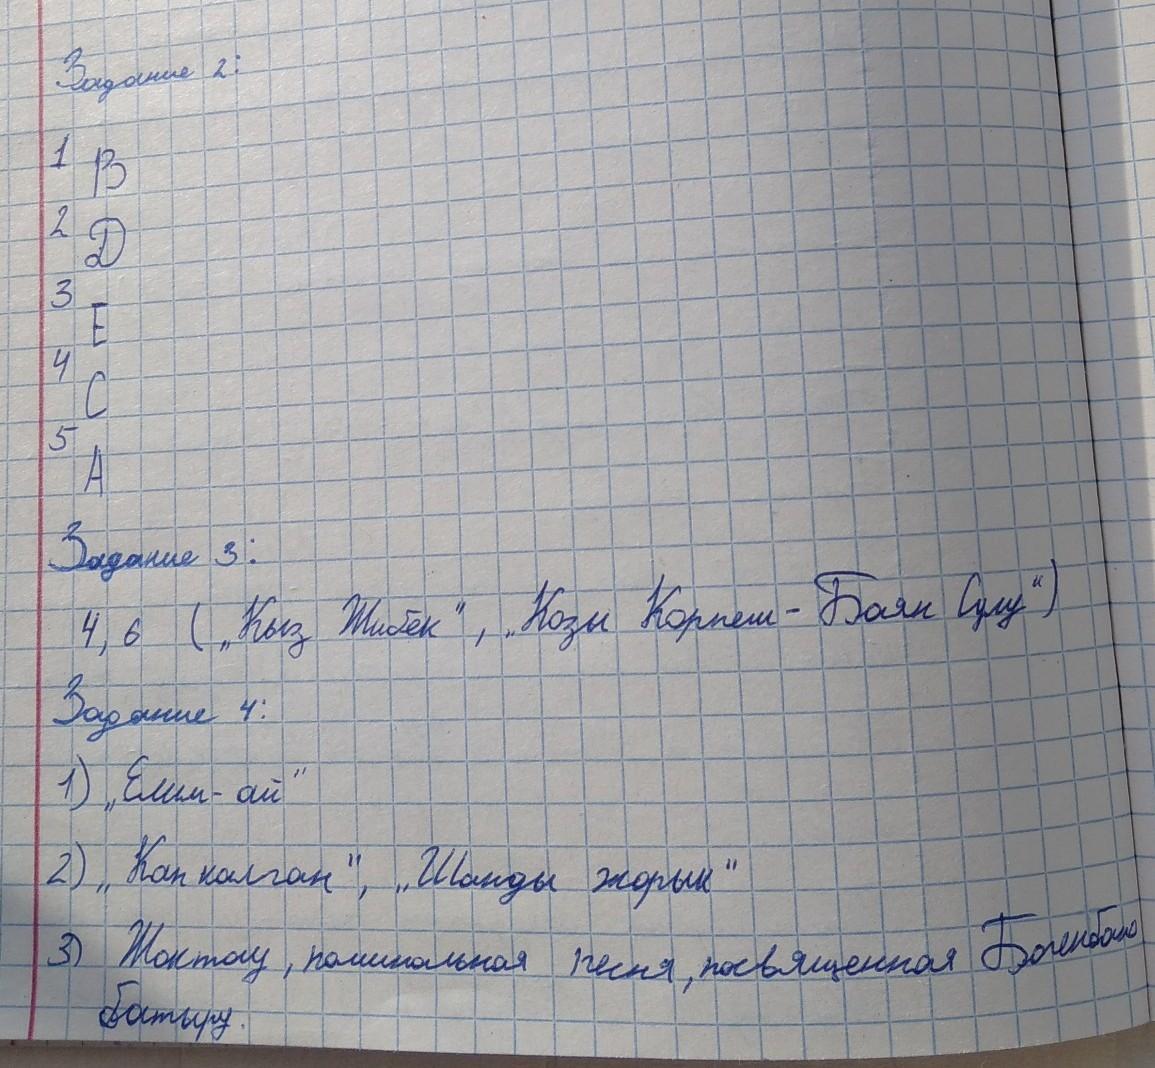 Задание 2:
1 B
2 D
3 E
4 C
5 A
Задание 3:
4, 6 („Кыз Жибек“, „Козы Корпеш - Баян Сулу“)
Задание 4:
1) „Елим-ай“
2) „Кап калган“, „Шанды жорык“
3) Жоктау, поминальная песня, посвященная Богенбаю
батыру.